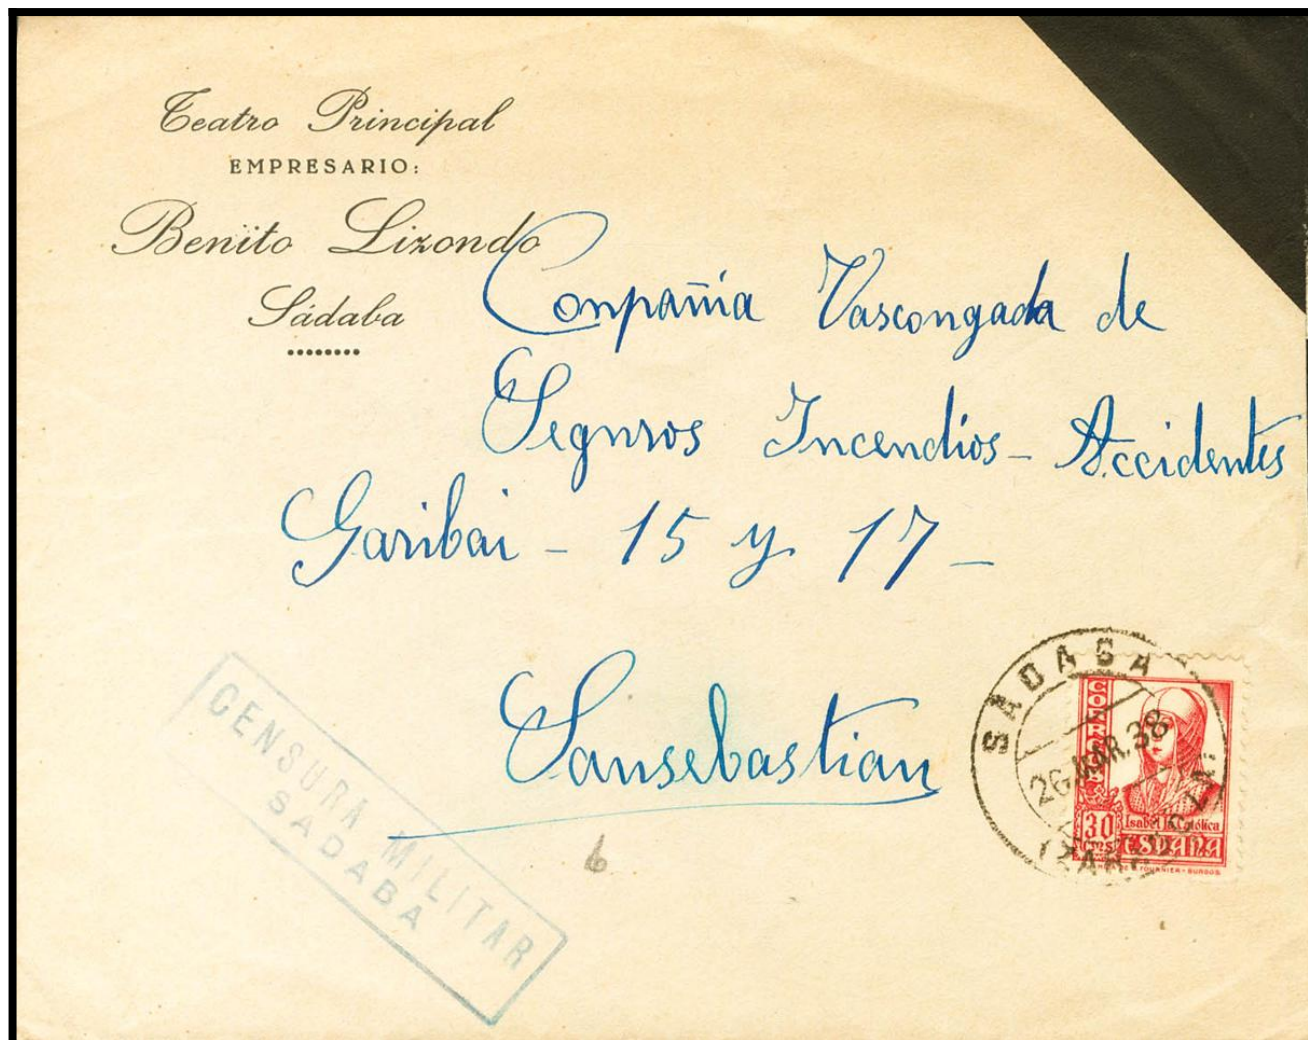 Teatro Principal
EMPRESARIO:
Benito Lizondo
Sádaba
Conpañia Vascongada de
Seguros Incendios - Accidentes
Garibai - 15 y 17 -
Sansebastian
CENSURA MILITAR
SADABA
6
SADABA
26 MAR. 38
CORREOS
30
CTMS
Isabel la Católica
ESPAÑA
FOURNIER - BURGOS